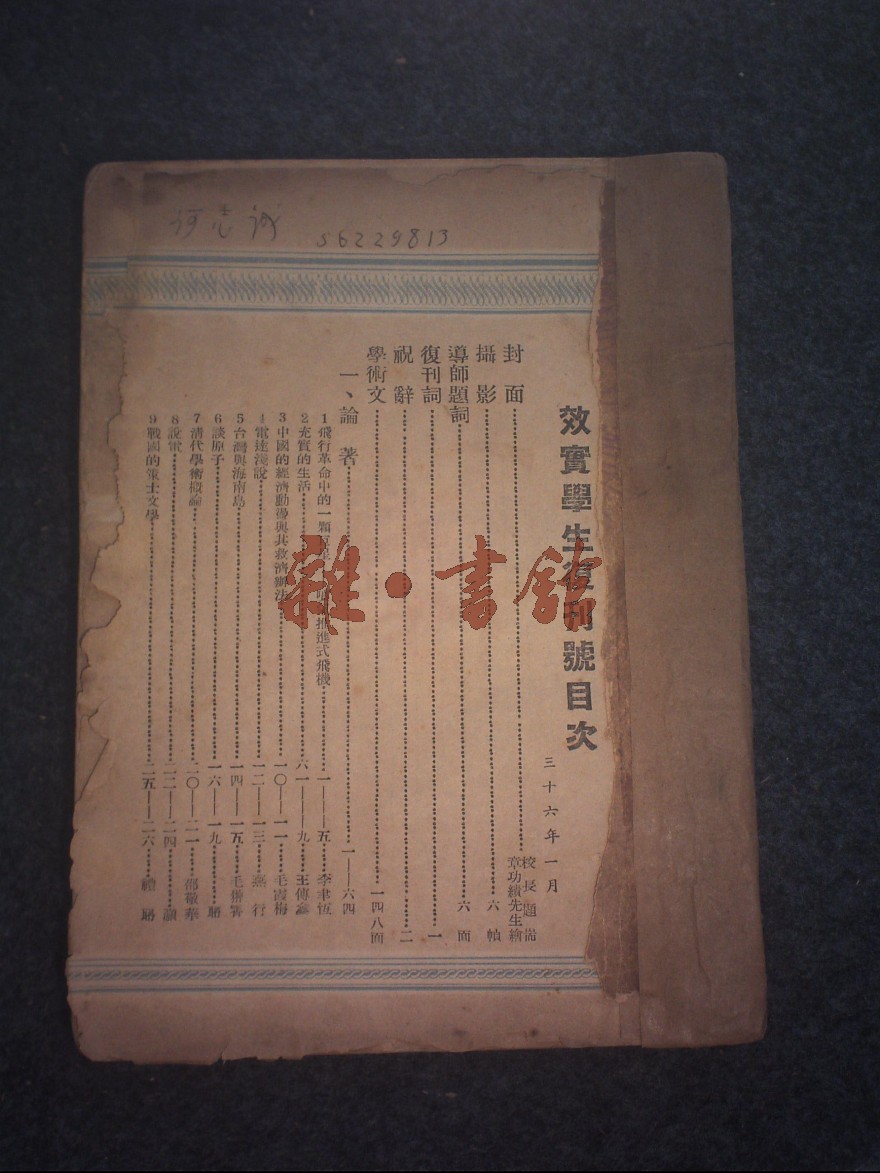 S6229813
效實學生復刊號目次
三十六年一月
封面
校長題耑
章功績先生繪
攝影 六幀
導師題詞 六面
復刊詞 一
祝辭 二
學術文 一四八面
一、論著 一——六四
1 飛行革命中的一顆 推進式飛機 一——五 李聿恆
2 充實的生活 六——九 王傳鑫
3 中國的經濟動盪與其救濟辦法 一〇——一一 毛霞梅
4 電達淺說 一二——一三 燕行
5 台灣與海南島 一四——一五 毛腾霄
6 談原子 一六——一九 勝
7 清代學術槪論 二〇——二一 邵敬奉
8 說電 二二——二四 灝
9 戰國的策士文學 二五——二六 禮勝
雜·書館